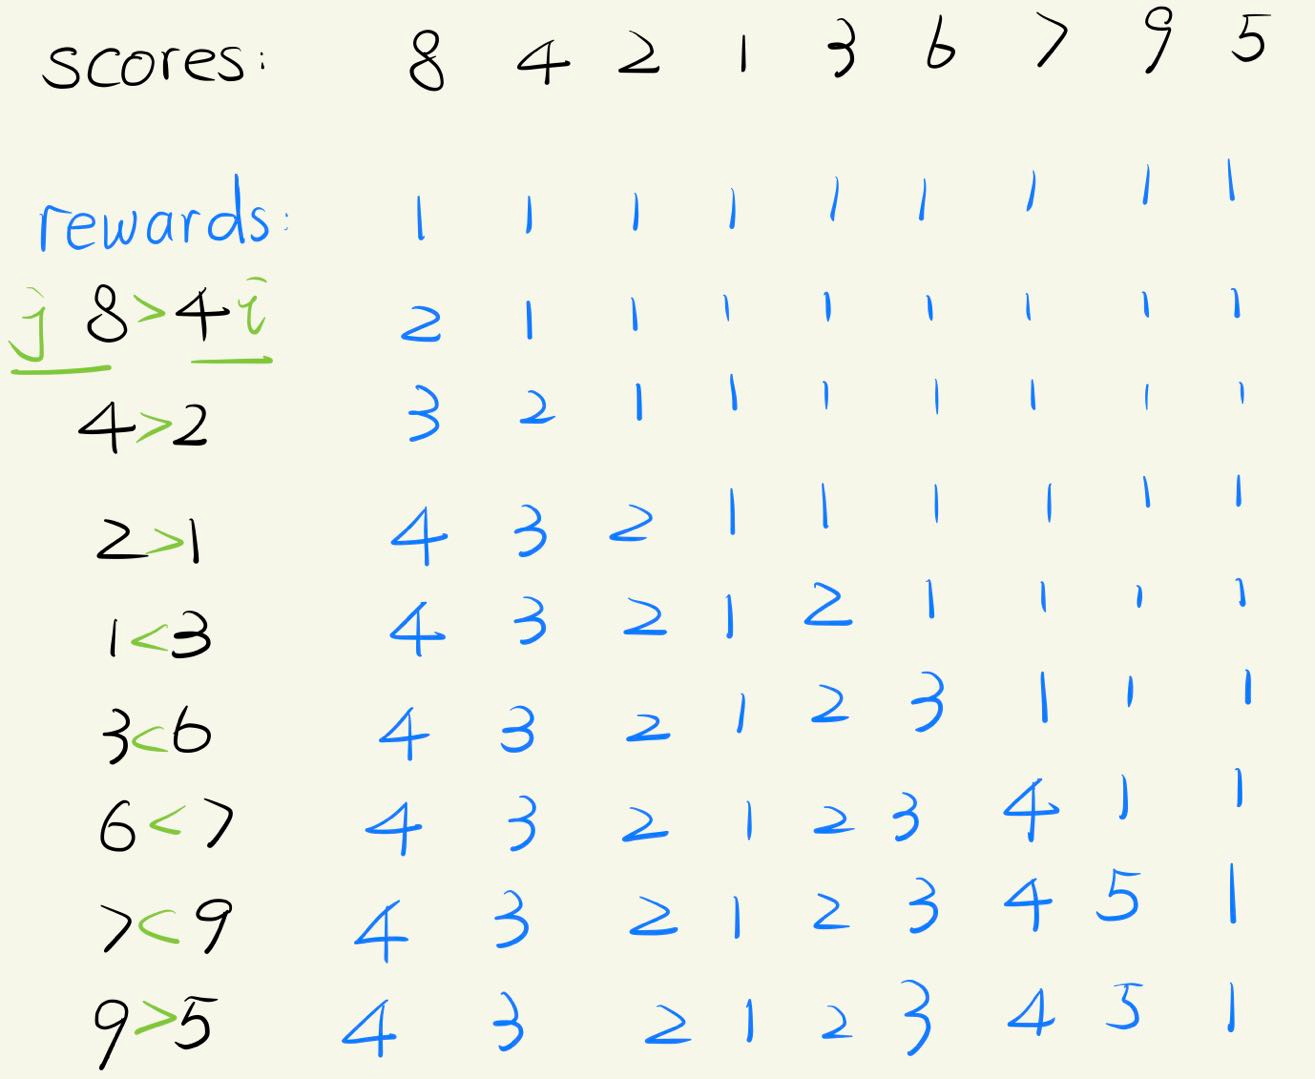 scores: 8 4 2 1 3 6 7 9 5
rewards: 1 1 1 1 1 1 1 1 1
j 8>4 i 2 1 1 1 1 1 1 1 1
4>2 3 2 1 1 1 1 1 1 1
2>1 4 3 2 1 1 1 1 1 1
1<3 4 3 2 1 2 1 1 1 1
3<6 4 3 2 1 2 3 1 1 1
6<7 4 3 2 1 2 3 4 1 1
7<9 4 3 2 1 2 3 4 5 1
9>5 4 3 2 1 2 3 4 5 1